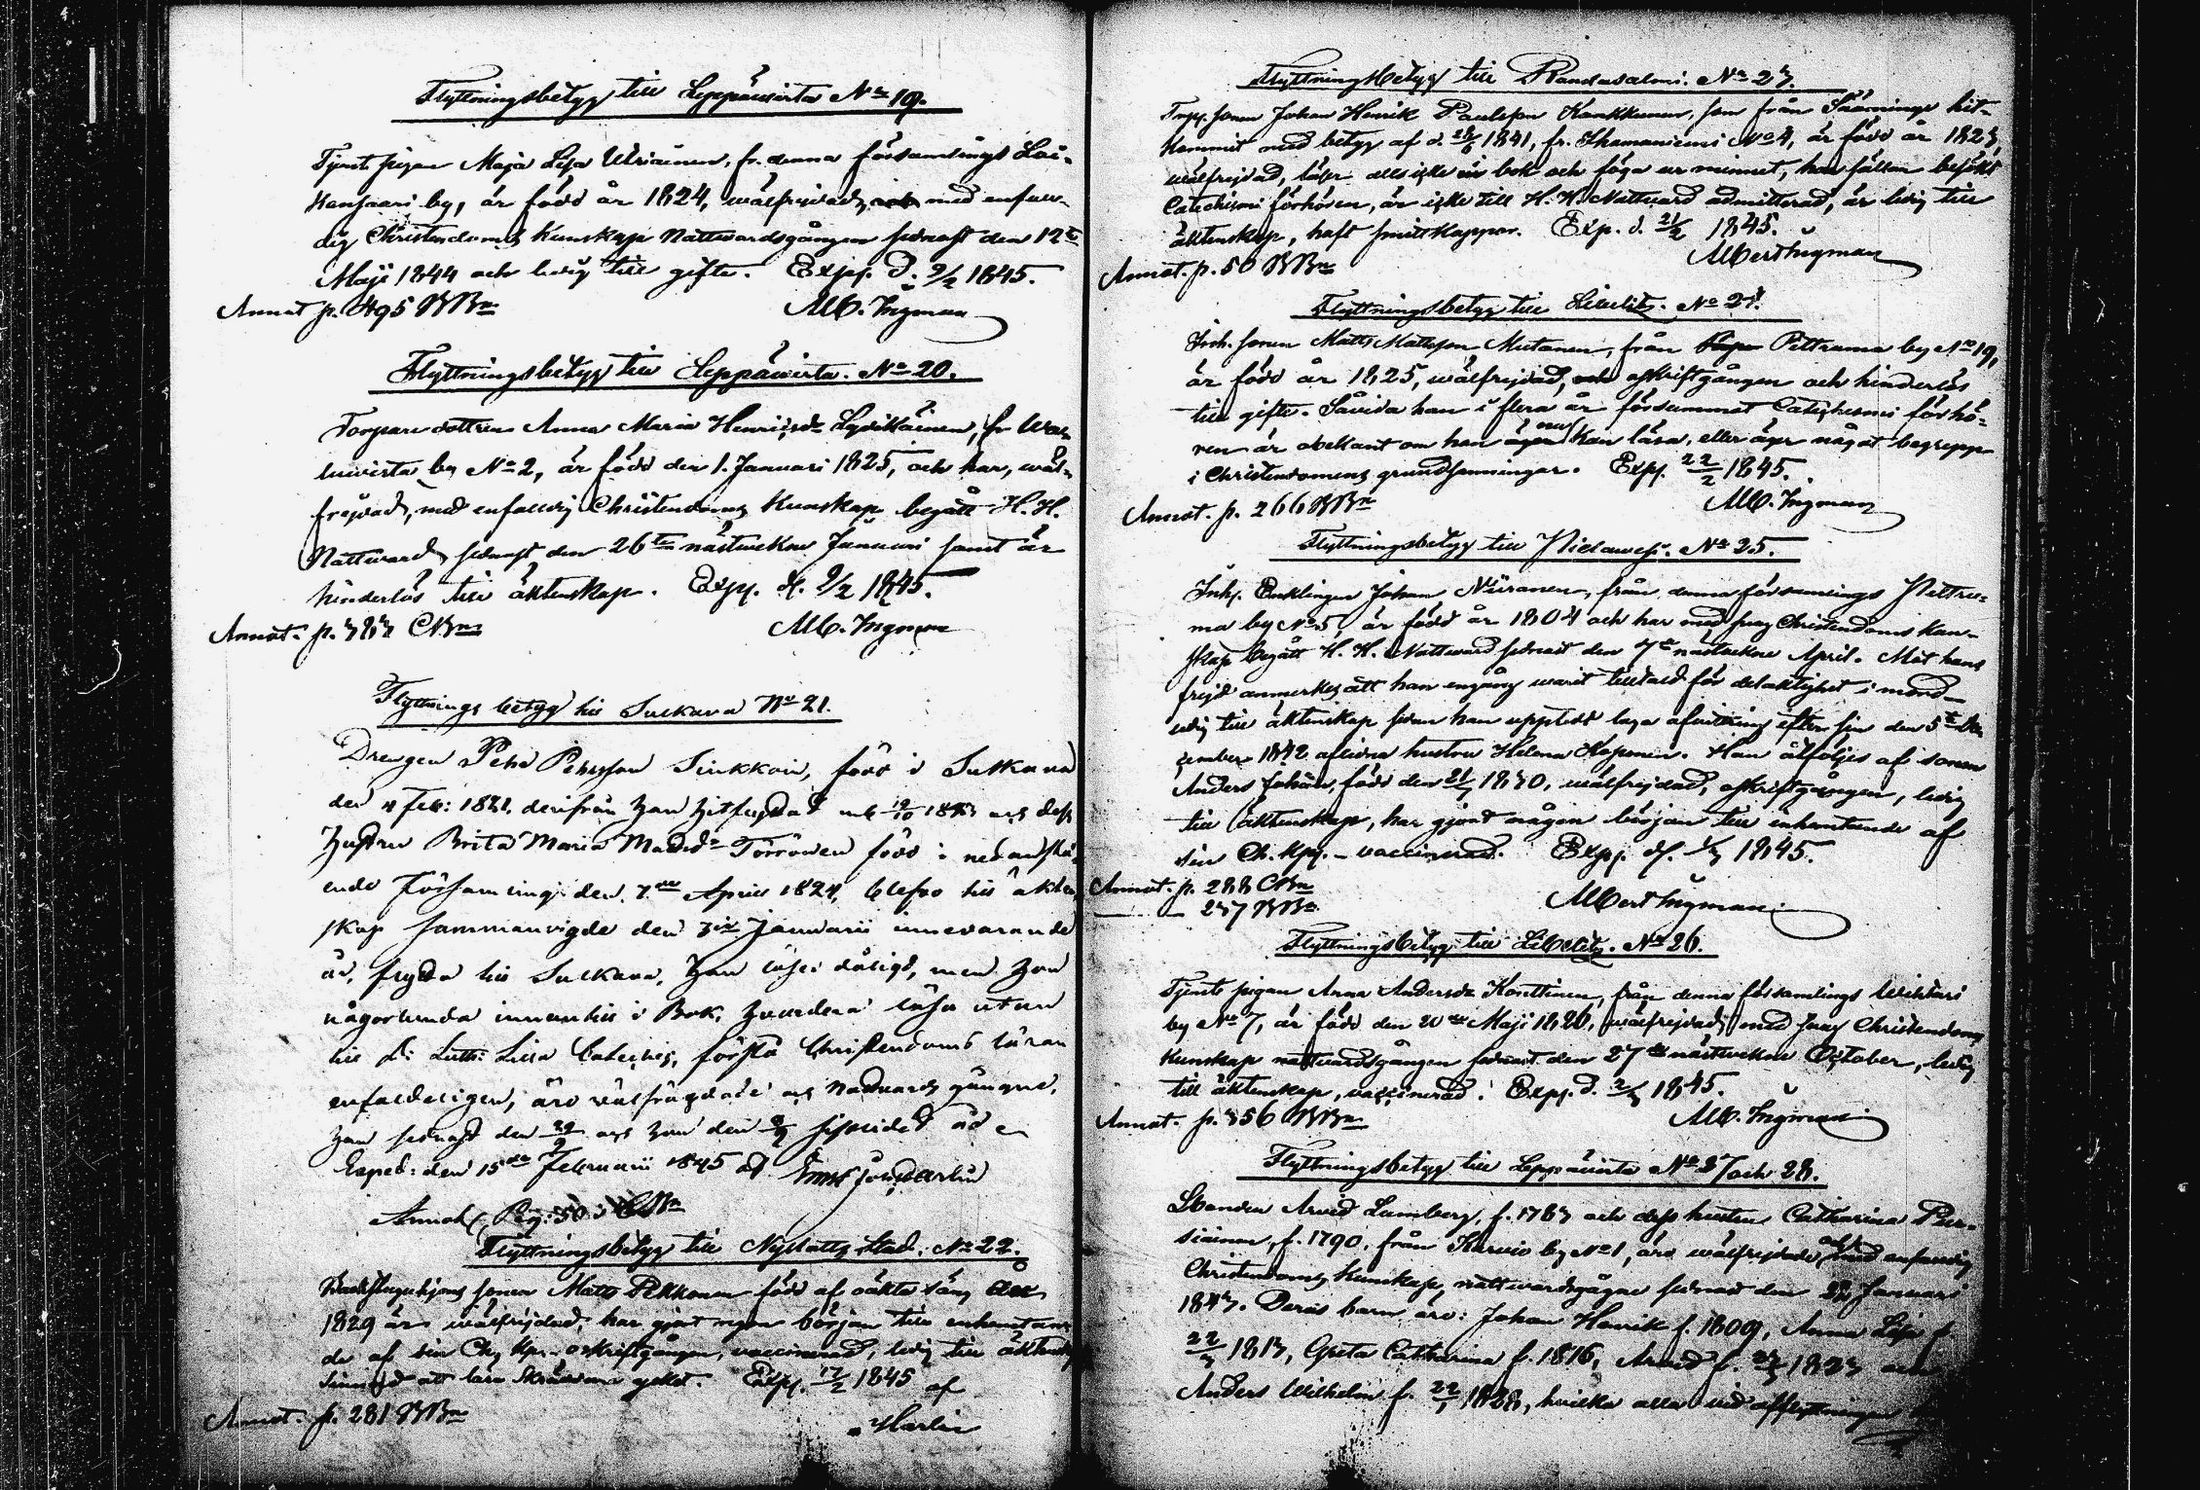 Flyttningsbetyg till Leppäwirta No 19.
Tjenst pigan Maja Lisa Ukriainen, fr. denna församlings Lai-
kansaari by, är född år 1824, wälfrejdad, med enfal-
dig Christendoms kunskap Nattwardsgången sednast den 12te
Maji 1844 och ledig till gifte. Exp. d. 9/2 1845.
Annot p. 495 BBn
Alb. Ingman
Flyttningsbetyg till Leppäwirta. No 20.
Torpare dottren Anna Maria Henricsdr Lyytikäinen, fr
by No 2, är född den 1. Januari 1825, och har, wäl-
frejdad, med enfaldig Christendoms Kunskap begått H. H.
Nattward sednast den 26te nästwekne Januari samt är
hinderlös till äktenskap. Exp. d. 9/2 1845.
Annot. p. CBn
Alb. Ingman
Flyttnings betyg till Sulkava No 21.
Drengen Pehr Pehrsson Sinkkoin, född i Sulkava
den Feb: derifrån han hitflyttad och dess
hustru Brita Maria Törrönen född i nedanstå-
ende Församling den 7de April blefvo till äkten-
skap sammanvigde den Januarii innevarande
år, flytta till Sulkava. Han läser dåligt, men hon
någorlunda innantill i Bok, hvardera läsa utan
till D: Luth: Lilla Cateches, förstå Christendoms läran
enfaldeligen, äro välfrägdade och Nattvards gångne,
han sednast den och hon den sistlidet år
Exped: den 15de Februarii 1845 af
Annot Pag: 50 i CBn
Flyttningsbetyg till Nystads Stad. No 22.
sonen Matts Pekkonen född af oäkta säng
1829 är wälfrejdad, har gjort någon början till inhemtan-
de af sin Chr. Kp. oskriftgången, vaccinerad, ledig till äktenskap
att lära Skrädare yrket. Exp. 17/2 1845 af
Annot. p. 281 BBn
Harlin
Flyttningsbetyg till Randasalmi. No 23.
Torp. sonen Johan Henrik Paulsson Kankkunen, som från Sääminge hit-
kommit med betyg af d. 1841, fr. No 4, är född år 1823,
wälfrejdad, läser alls icke i bok och föga ur minnet, har sällan besökt
Catechismi förhören, är icke till H. H. Nattward admitterad, är ledig till
äktenskap, haft smittkoppor. Exp. d. 21/2 1845.
Albert Ingman
Annot. p. 50 BBn
Flyttningsbetyg till Libelitz. No 24.
Inh. sonen Matts Mattsson Mutanen, från Pettruma by No 19,
är född år 1825, wälfrejdad, oskriftgången och hinderlös
till gifte. Såvida han i flera år försummat Catechismi förhö-
ren är obekant om han kan läsa, eller äger något begrepp
i Christendomens grundsanningar. Exp. 22/2 1845.
Annot. p. 266 BBn
Alb. Ingman
Flyttningsbetyg till Pielawesi. No 25.
Inh. Enklingen Johan Niiranen, från denna församlings Pettru-
ma by No 5, är född år 1804 och har med swag Christendoms Kun-
skap begått H. H. Nattward sednast den 7de nästwekne April. Mot hans
frejd anmerkes att han engång warit tilltald för delaktighet i mord
ledig till äktenskap sedan han upptedt laga afwittring efter sin den 5te De-
cember 1842 aflidna hustru Helena Kaponen. Han åtföljes af sonen
Anders Johan, född den 1830, wälfrejdad, oskriftgången, ledig
till äktenskap, har gjort någon början till inhemtande af
sin Ch. Kp. - vaccinerad. Exp. d. 1845.
Annot. p. 288 CBn
— 237 BBn
Albert Ingman
Flyttningsbetyg till Libelitz. No 26.
Tjenste pigan Anna Andersdr Konttinen, från denna församlings
by No 7, är född den 20de Maji 1826, wälfrejdad, med swag Christendoms
kunskap nattwardsgången sednast den 27de nästwekne October, ledig
till äktenskap, vaccinerad. Exp. d. 1845.
Annot. p. 356 BBn
Alb. Ingman
Flyttningsbetyg till Leppäwirta No 27 och 28.
Arvid Lumberg, f. 1787 och dess hustru Catharina Per-
siainen, f. 1790, från Kerwio by No 1, äro wälfrejdade, med enfaldig
Christendoms kunskap, nattwardsgågne sednast den Januari
1843. Deras barn äro: Johan Henrik f. 1809, Anna Lisa f.
1813, Greta Catharina f. 1816, Arvid f. 1823 och
Anders Wilhelm f. 1828, hwilka alla wid afflyttningen